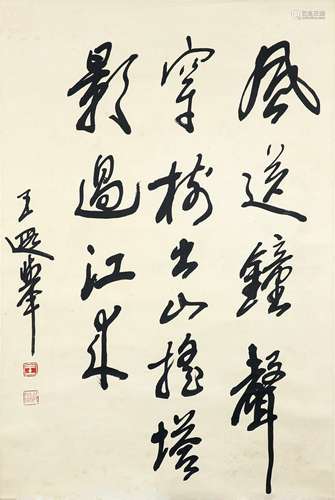 風送鐘聲
穿樹出山搖塔
影過江來
王遐舉